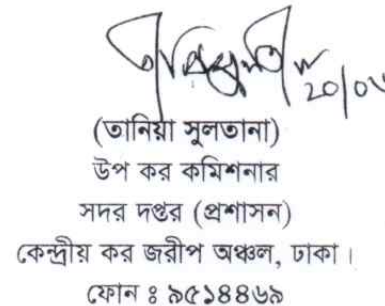 20/0
(তানিয়া সুলতানা)
উপ কর কমিশনার
সদর দপ্তর (প্রশাসন)
কেন্দ্রীয় কর জরীপ অঞ্চল, ঢাকা।
ফোন ঃ ৯৫১৪৪৬৯